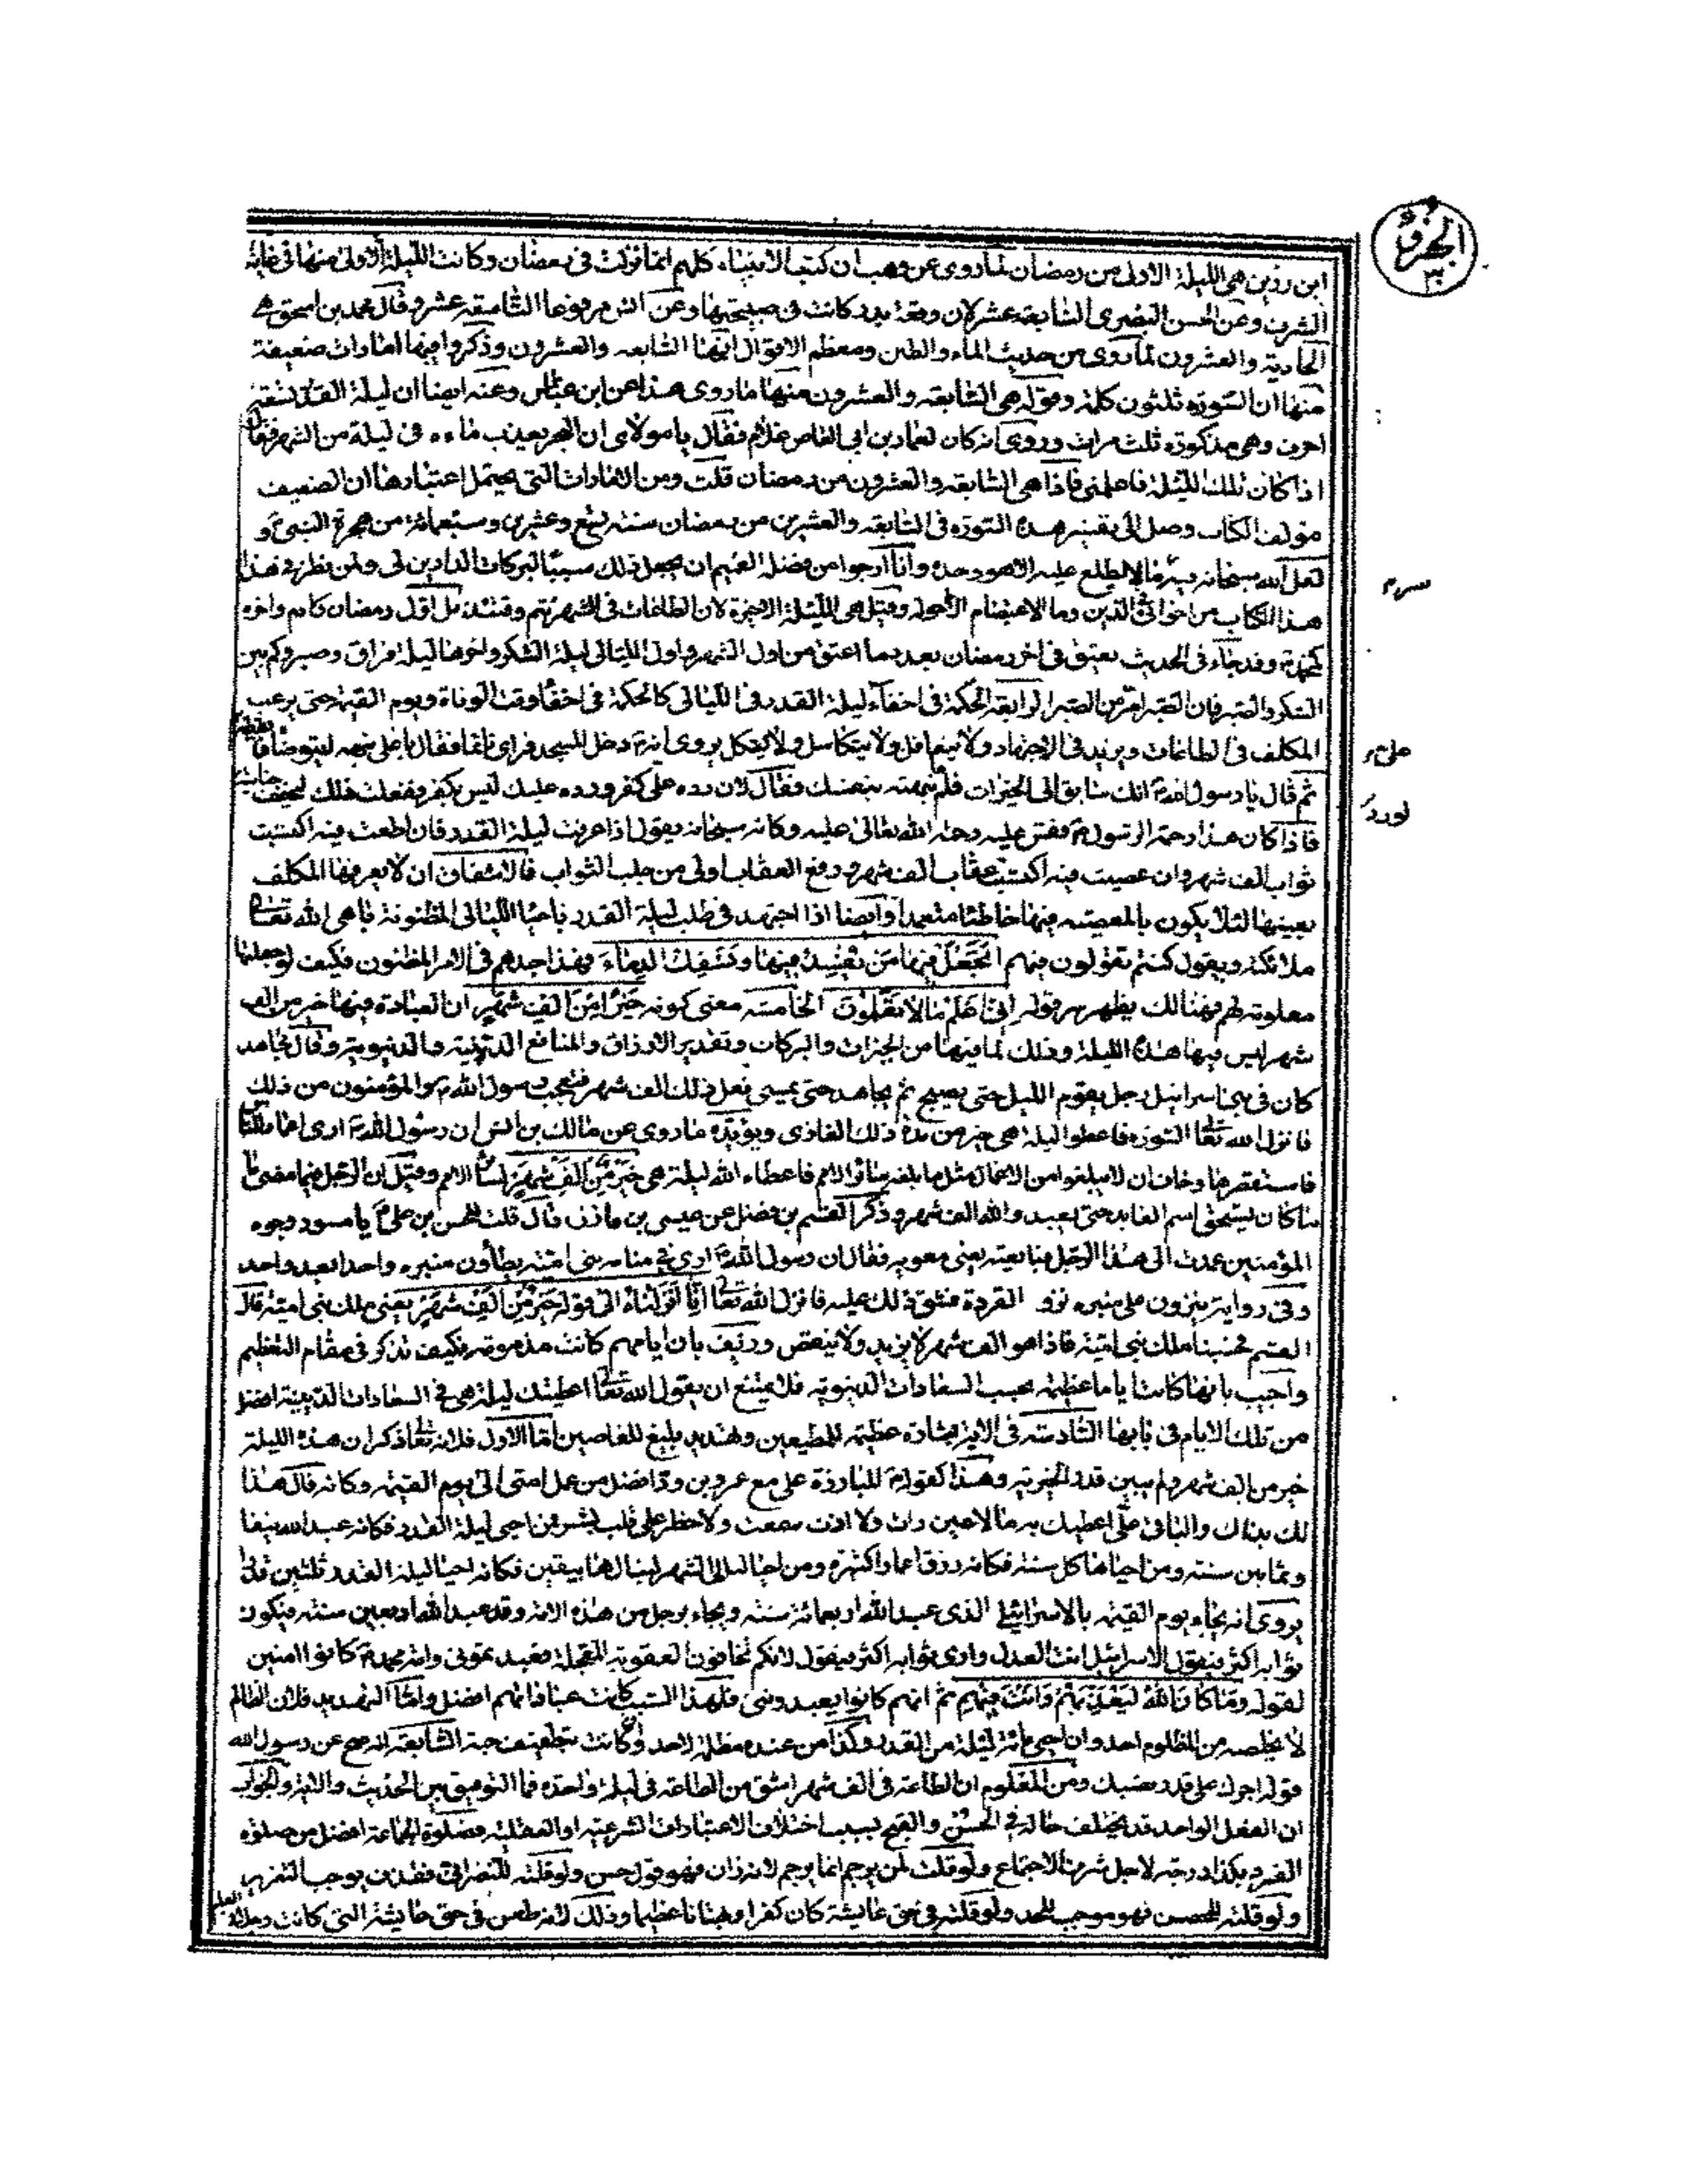 الجزو
٣٠
ابن رزين هي الليلة الاولى من رمضان لما روى عن وهب ان كتب الانبياء كلهم انما نزلت في رمضان وكانت الليلة الاولى منها في غاية
الشرف وعن الحسن البصرى السابعة عشر لان وقعة بدر كانت في صبيحتها وعن انس مرفوعا التاسعة عشر وقال محمد بن اسحق هي
الحادية والعشرون لما روى من حديث الماء والطين ومعظم الاقوال انها السابعة والعشرون وذكروا فيها امارات ضعيفة
منها ان السورة ثلثون كلمة وقوله هي السابعة والعشرون منها ما روى هذا عن ابن عباس وعنه ايضا ان ليلة القدر تسعة
احرف وهي مذكورة ثلث مرات وروى انه كان لعثمان بن ابى العاص غلام فقال يا مولاى ان البحر يعذب ماءه في ليلة من الشهر فقال
اذا كان تلك الليلة فاعلمنى فاذا هي السابعة والعشرون من رمضان قلت ومن الامارات التى يحتمل اعتبارها ان الضعيف
مؤلف الكتاب وصل الى تفسير هذه السورة في السابعة والعشرين من رمضان سنة تسع وعشرين وسبعمائة من هجرة النبى و
لعل الله سبحانه فيه سرا لا يطلع عليه الا هو وحده وانا ارجوا من فضله العميم ان يجعل ذلك سببا لبركات الدارين لى ولمن نظر في
هذا الكتاب من اخوانى في الدين وما الاعتصام الا حوله وقيل هي الليلة الاخيرة لان الطاعات في الشهر تتم وقتئذ بل اول رمضان كادم واخره
كمحمد وقد جاء في الحديث يعتق في اخر رمضان بعدد ما اعتق من اول الشهر واول الليالى ليلة الشكر واخرها ليلة فراق وصبر وكم بين
الشكر والصبر فان الصبر امر من الصبر الرابعة الحكمة في اخفاء ليلة القدر في الليالى كالحكمة في اخفاء وقت الوفاة ويوم القيمة حتى يرغب
المكلف في الطاعات ويزيد في الاجتهاد ولا يتغافل ولا يتكاسل ولا يتكل يروى انه دخل المسجد فراى نائما فقال يا على نبهه ليتوضأ
ثم قال يا رسول الله انك سابق الى الخيرات فلم نبهته بنفسك فقال لان رده على كفر ورده عليك ليس بكفر ففعلت ذلك لتخف جنايته
فاذا كان هذا رحمة الرسول فقس عليه رحمة الله تعالى عليه وكانه سبحانه يقول اذا عرفت ليلة القدر فان اطعت فيه اكتسبت
ثواب الف شهر وان عصيت فيه اكتسبت عقاب الف شهر ودفع العقاب اولى من جلب الثواب فالاشفاق ان لا يعرفها المكلف
بعينها لئلا يكون بالمعصية فيها خاطئا متعمدا وايضا اذا اجتهد في طلب ليلة القدر باحياء الليالى المظنونة باهى الله تعالى
ملائكته ويقول كنتم تقولون فيهم اتجعل فيها من يفسد فيها ويسفك الدماء فهذا جدهم في الامر المظنون فكيف لو جعلتها
معلومة لهم فهنالك يظهر سر قوله انى اعلم ما لا تعلمون الخامسة معنى كونه خيرا من الف شهر ان العبادة فيها خير من الف
شهر ليس فيها هذه الليلة وذلك لما فيها من الخيرات والبركات وتقدير الارزاق والمنافع الدينية والدنيوية وقال مجاهد
كان في بنى اسرائيل رجل يقوم الليل حتى يصبح ثم يجاهد حتى يمسى فعل ذلك الف شهر فتعجب رسول الله والمؤمنون من ذلك
فانزل الله تعالى السورة فاعطوا ليلة هي خير من مدة ذلك الغازى ويؤيده ما روى عن مالك بن انس ان رسول الله ارى اعمار الناس
فاستقصرها وخاف ان لا يبلغوا من الاعمال مثل ما بلغه سائر الامم فاعطاه الله ليلة هي خير من الف شهر لسائر الامم وقيل ان الرجل فيما مضى
ما كان يستحق اسم العابد حتى يعبد الله الف شهر وذكر القسم بن فضل عن عيسى بن مازن قال قلت للحسن بن على يا مسود وجوه
المؤمنين عمدت الى هذا الرجل فبايعته يعنى معوية فقال ان رسول الله ارى في منامه بنى امية يطأون منبره واحدا بعد واحد
وفي رواية ينزون على منبره نزو القردة فشق ذلك عليه فانزل الله تعالى انا انزلناه الى قوله خير من الف شهر يعنى ملك بنى امية قال
القسم فحسبنا ملك بنى امية فاذا هو الف شهر لا يزيد ولا ينقص وزيف بان ايامهم كانت مذمومة فكيف تذكر في مقام التعظيم
واجيب بانها كانت اياما عظيمة بحسب السعادات الدنيوية فلا يمتنع ان يقول الله تعالى اعطيتك ليلة هي في السعادات الدينية افضل
من تلك الايام في بابها السادسة في الاية بشارة عظيمة للمطيعين وتهديد بليغ للعاصين اما الاول فلانه تعالى ذكر ان هذه الليلة
خير من الف شهر ولم يبين قدر الخيرية وهذا كقوله لمبارزة على مع عمرو بن ود افضل من عمل امتى الى يوم القيمة وكانه قال هذا
لك بذاك والباقى على اعطيك به ما لا عين رات ولا اذن سمعت ولا خطر على قلب بشر من احيى ليلة القدر فكانه عبد الله نيفا
وثمانين سنة ومن احياها كل سنة فكانه رزق اعمارا كثيرة ومن احيا ليالى الشهر لينالها بيقين فكانه احيا ليلة القدر ثلثين قدرا
يروى انه يجاء يوم القيمة بالاسرائيلى الذى عبد الله اربعمائة سنة ويجاء برجل من هذه الامة وقد عبد الله اربعين سنة فيكون
ثوابه اكثر فيقول الاسرائيلى انت العدل وارى ثوابه اكثر فيقول لانكم تخافون العقوبة المعجلة فتعبدونى وامة محمد كانوا امنين
لقوله وما كان الله ليعذبهم وانت فيهم ثم انهم كانوا يعبدوننى فلهذا السبب كانت عباداتهم افضل واما التهديد فلان الظالم
لا يخلصه من المظلوم احد وان احيى مائة ليلة من القدر وكذا من عنده مظلة لاحد السابعة الرجع عن رسول الله
قوله اجرك على قدر نصبك ومن المعلوم ان الطاعة في الف شهر اشق من الطاعة في ليلة واحدة فما التوفيق بين الحديث والاية والجواب
ان الفعل الواحد قد يختلف حاله في الحسن والقبح بسبب اختلاف الاعتبارات الشرعية او العقلية فصلوة الجماعة افضل من صلوة
الفرد بكذا درجة لاجل شرف الاجتماع ولو قلت لمن يرجم انما يرجم لانه زان فهو قول حسن ولو قلته للنصرانى فقذف يوجب التعزير
ولو قلته للمحصن فهو موجب للحد ولو قلته في حق عايشة كان كفرا وبهتانا عظيما وذلك لانه طعن في حق عايشة التى كانت